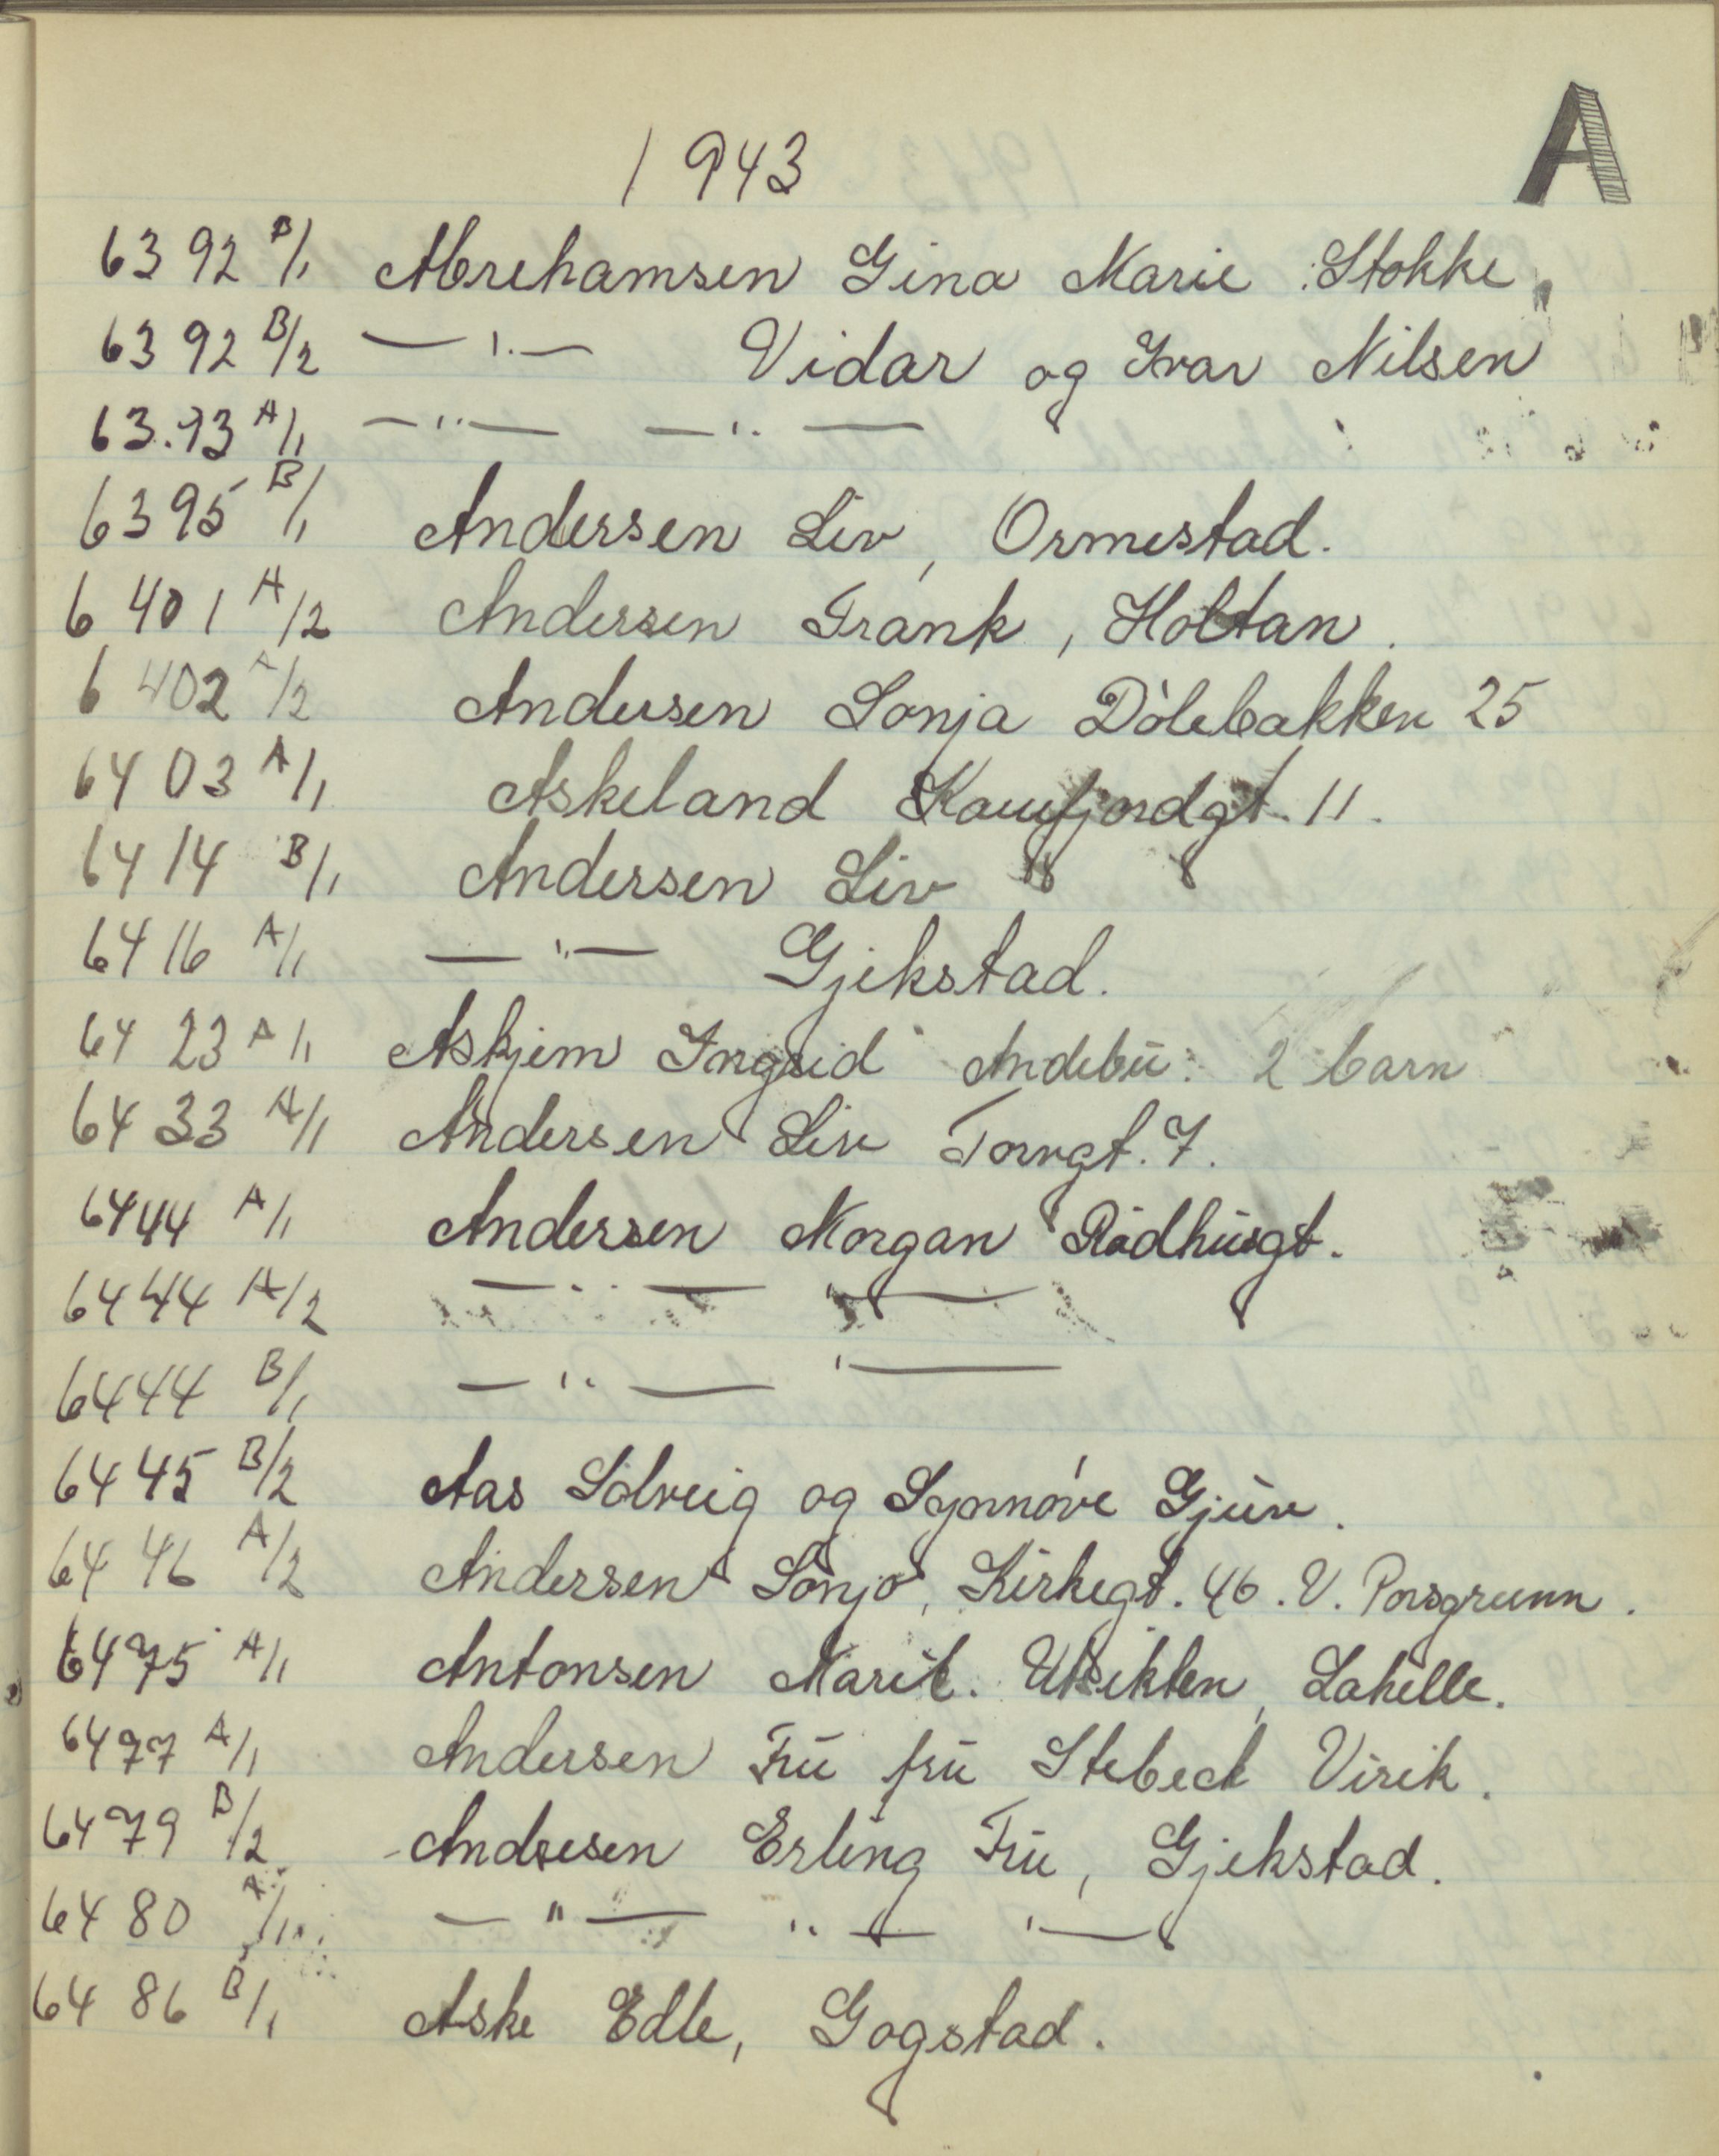 A
1943
6392 B/1 Abrehamsen Gina Marie Stokke
6392 B/2 — " — Vidar og Ivar Nilsen
6393 A/1 — " — — " —
6395 B/1 Andersen Liv, Ormestad.
6401 A/2 Andersen Frank, Holtan.
6402 A/2 Andersen Sonja Dølebakken 25
6403 A/1 Askeland Kamfjordgt. 11.
6414 B/1 Andersen Liv
6416 A/1 — " — Gjekstad.
6423 A/1 Askjem Ingrid Andebu: 2 barn
6433 A/1 Andersen Liv Torvgt. 7.
6444 A/1 Andersen Morgan Rådhusgt.
6444 A/2 — " — " —
6444 B/1 — " — " —
6445 B/2 Aas Solveig og Synnøve Gjuv.
6446 A/2 Andersen Sonja, Kirkegt. 46. V. Porsgrunn.
6475 A/1 Antonsen Marit. Utsikten, Lahelle.
6477 A/1 Andersen Fru fru Stebeck Virik.
6479 B/2 Andresen Erling Fru, Gjekstad.
6480 A/1 — " — " — " —
6486 B/1 Aske Edle, Gogstad.